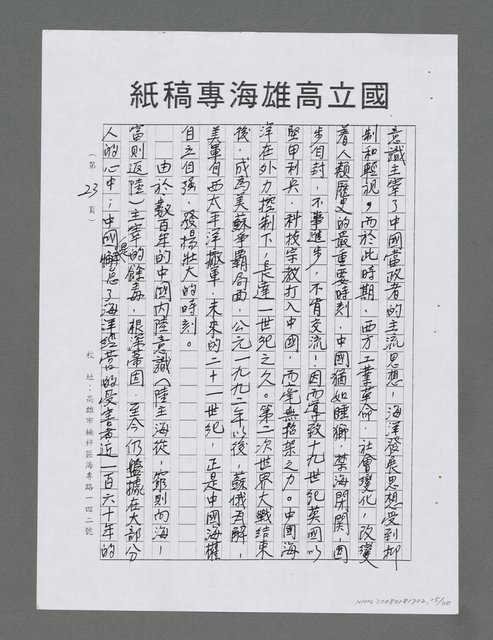 國立高雄海專稿紙
意識主宰了中國當政者的主流思想，海洋發展思想受到抑
制和輕視。而於此時期，西方工業革命，社會變化，改變
着人類歷史的最重要時刻，中國猶如睡獅，禁海閉關，固
步自封，不事進步，不肯交流！因而導致十九世紀英國以
堅甲利兵，科技宗教打入中國，而毫無招架之力。中國海
洋在外力控制下，長達一世紀之久。第二次世界大戰結束
後，成為美蘇爭霸局面，公元一九九二年以後，蘇俄瓦解，
美軍自西太平洋撤軍，未來的二十一世紀，正是中國海權
自立自強，發揚壯大的時刻。
由於數百年的中國內陸意識（陸主海從，窮則向海！
富則返陸）主宰的餘毒，根深蒂固，至今仍盤據在大部分
人的心中；中國忘了海洋經營的受害者近一百六十年的
（第 23 頁）
校址：高雄市楠梓區海專路一四二號
NMTL20080181702, 25/30